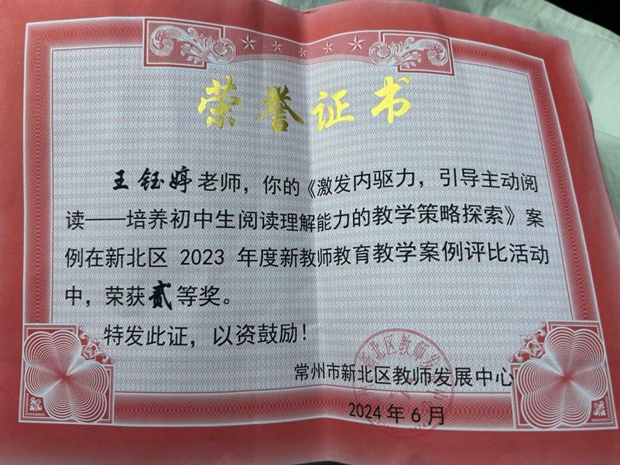 荣誉证书
王钰婷老师，你的《激发内驱力，引导主动阅
读——培养初中生阅读理解能力的教学策略探索》案
例在新北区 2023 年度新教师教育教学案例评比活动
中，荣获贰等奖。
特发此证，以资鼓励！
常州市新北区教师发展中心
2024 年 6 月